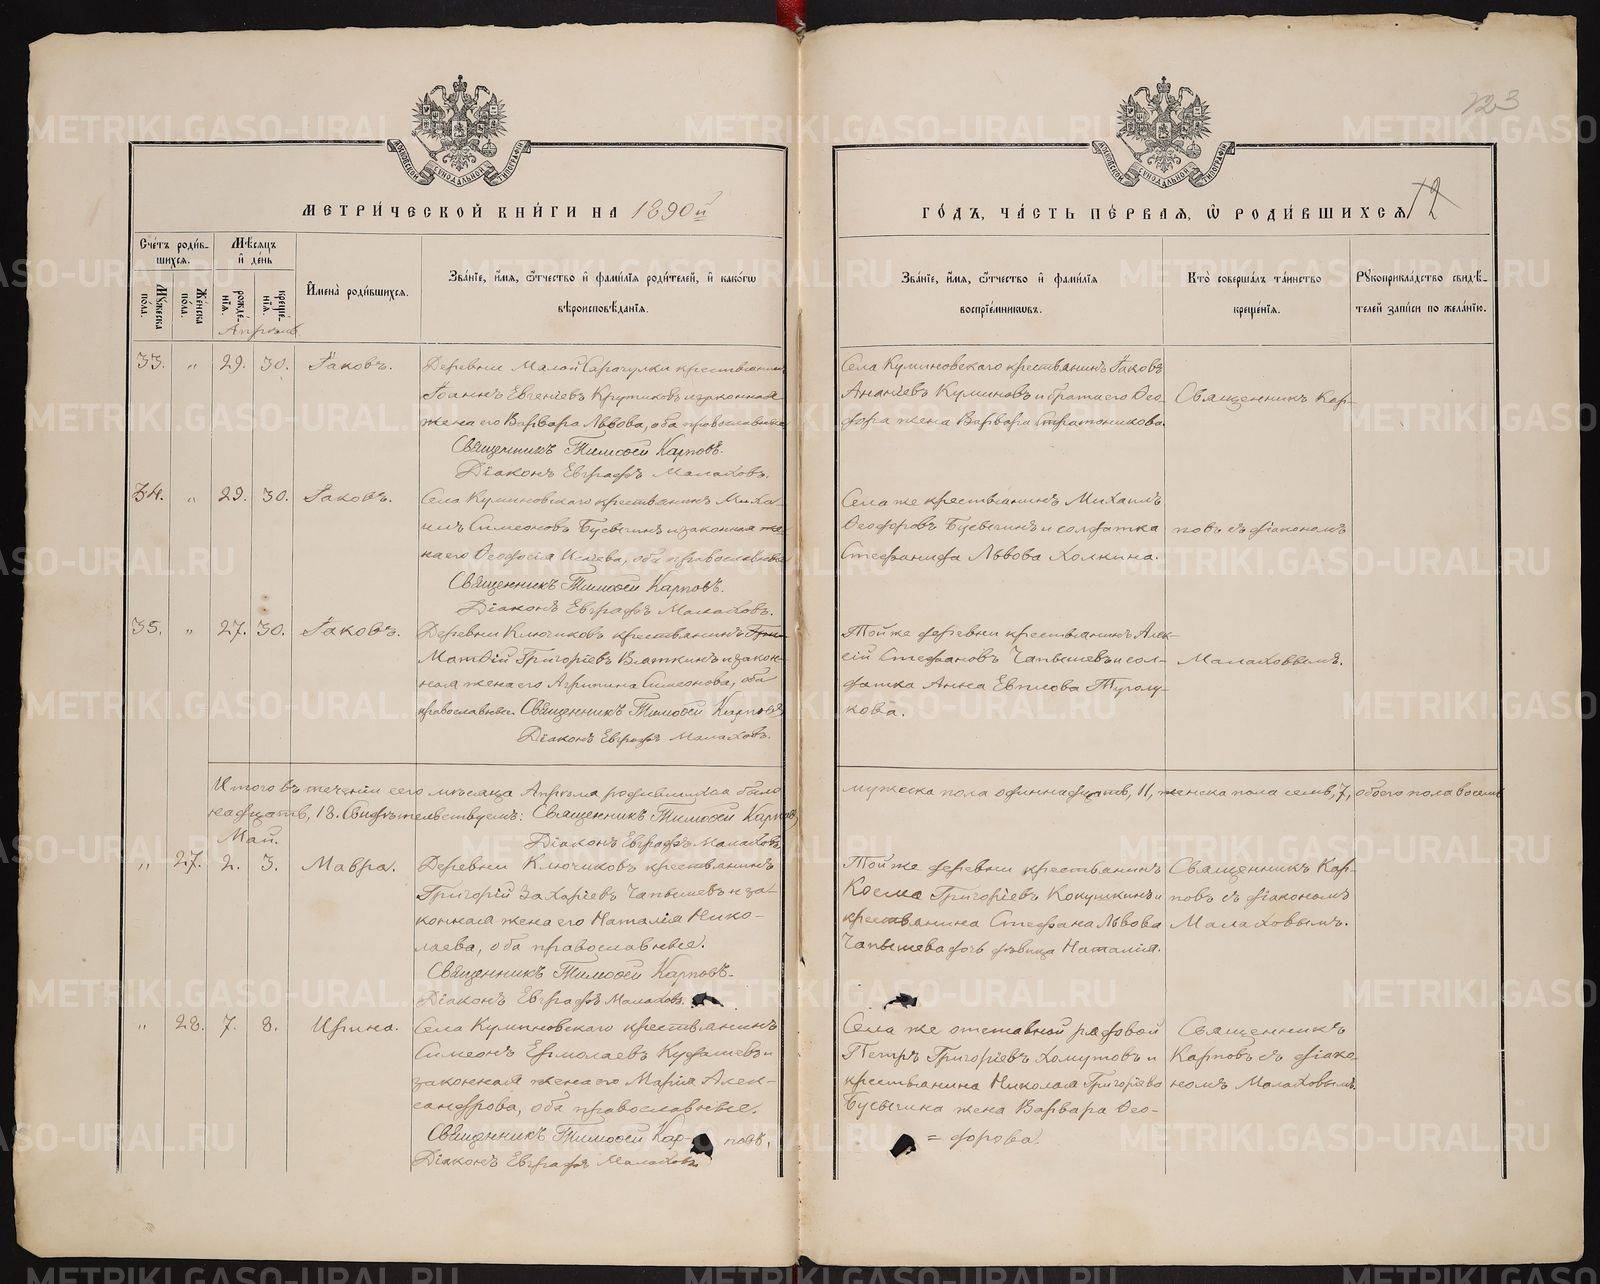 723
МОСКОВСКОЙ СѴНОДАЛЬНОЙ ТИПОГРАФІИ
МОСКОВСКОЙ СѴНОДАЛЬНОЙ ТИПОГРАФІИ
МЕТРИ́ЧЕСКОЙ КНИ́ГИ НА 1890й
ГО́ДЪ, ЧА́СТЬ ПЕ́РВАЯ, Ѡ РОДИ́ВШИХСЯ 12
Сче́тъ роди́в-
шихся.
Мꙋ́жеска по́ла.
Же́нска по́ла.
Мѣ́сяцъ
и̓ де́нь
рожде́-нїя.
креще́-нїя.
И̓мена̀ роди́вшихся.
Зва́нїе, и̓́мя, ѻ̓́тчество и̓ фами́лїя роди́телей, и̓ како́гѡ
вѣроисповѣ́данїя.
Зва́нїе, и̓́мя, ѻ̓́тчество и̓ фами́лїя
воспрїе́мникѡвъ.
Кто̀ соверша́лъ та́инство
креще́нїя.
Рꙋкоприкла́дство свидѣ́-
телей за́писи по жела́нїю.
Апрѣль.
33. „ 29. 30. Іаковъ.
Деревни Малой Сарачулки крестьянинъ
Іоаннъ Евгеніевъ Крутиковъ и законная
жена его Варвара Львова, оба православные
Священникъ Тимоѳей Карповъ.
Діаконъ Евграфъ Малаховъ.
Села Куминовскаго крестьянинъ Іаковъ
Ананіевъ Куминовъ и брата его Ѳео-
дора жена Варвара Стратоникова.
Священникъ Кар-
34. „ 29. 30. Іаковъ.
Села Куминовскаго крестьянинъ Миха-
илъ Симеоновъ Бусыгинъ и законная же-
на его Ѳеодосія Исаева, оба православные
Священникъ Тимоѳей Карповъ.
Діаконъ Евграфъ Малаховъ.
Села же крестьянинъ Михаилъ
Ѳеодоровъ Бусыгинъ и солдатка
Стефанида Львова Холкина.
повъ съ діакономъ
35. „ 27. 30. Іаковъ.
Деревни Ключиковъ крестьянинъ Гри-
Матѳій Григоріевъ Вяткинъ и закон-
ная жена его Агрипина Симеонова, оба
православные. Священникъ Тимоѳей Карповъ
Діаконъ Евграфъ Малаховъ.
Той же деревни крестьянинъ Алек-
сій Стефановъ Чапышевъ и сол-
датка Анна Евтиова Туголу-
кова.
Малаховымъ.
Итого въ теченіи сего мѣсяца Апрѣля родившихся было
мужеска пола одиннадцать, 11, женска пола семь, 7, обоего пола восемь
надцать, 18. Свидѣтельствуемъ: Священникъ Тимоѳей Карповъ,
Діаконъ Евграфъ Малаховъ.
Май.
„ 27. 2. 3. Мавра.
Деревни Ключиковъ крестьянинъ
Григорій Захаріевъ Чапышевъ и за-
конная жена его Наталія Нико-
лаева, оба православные.
Священникъ Тимоѳей Карповъ.
Діаконъ Евграфъ Малаховъ.
Той же деревни крестьянинъ
Косма Григоріевъ Кокушкинъ и
крестьянина Стефана Львова
Чапышева дочь дѣвица Наталія.
Священникъ Кар-
повъ съ діакономъ
Малаховымъ.
„ 28. 7. 8. Ирина.
Села Куминовскаго крестьянинъ
Симеонъ Ермолаевъ Кудашевъ и
законная жена его Марія Алек-
сандрова, оба православные.
Священникъ Тимоѳей Кар- повъ,
Діаконъ Евграфъ Малаховъ
Села же отставной рядовой
Петръ Григоріевъ Хомутовъ и
крестьянина Николая Григоріева
Бусыгина жена Варвара Ѳео-
= дорова.
Священникъ
Карповъ съ діако-
номъ Малаховымъ.
METRIKI.GASO-URAL.RU